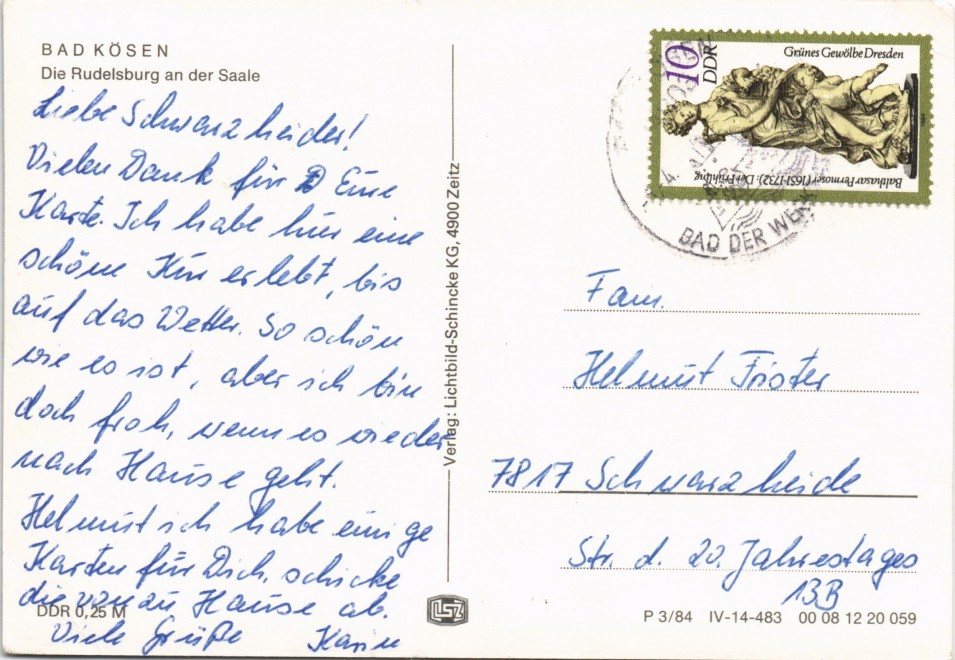 BAD KÖSEN
Die Rudelsburg an der Saale
Liebe Schwarzheider!
Vielen Dank für Eure
Karte. Ich habe hier eine
schöne Kur erlebt, bis
auf das Wetter. So schön
wie es ist, aber ich bin
doch froh, wenn es wieder
nach Hause geht.
Helmut ich habe einige
Karten für Dich, schicke
die von zu Hause ab.
Viele Grüße Karin
DDR 0,25 M
Verlag: Lichtbild-Schincke KG, 4900 Zeitz
LSZ
10
DDR
Grünes Gewölbe Dresden
Balthasar Permoser (1651-1732): Der Frühling
BAD DER WERK
Fam.
Helmut Frister
7817 Schwarzheide
Str. d. 20. Jahrestages
13B
P 3/84 IV-14-483 00 08 12 20 059